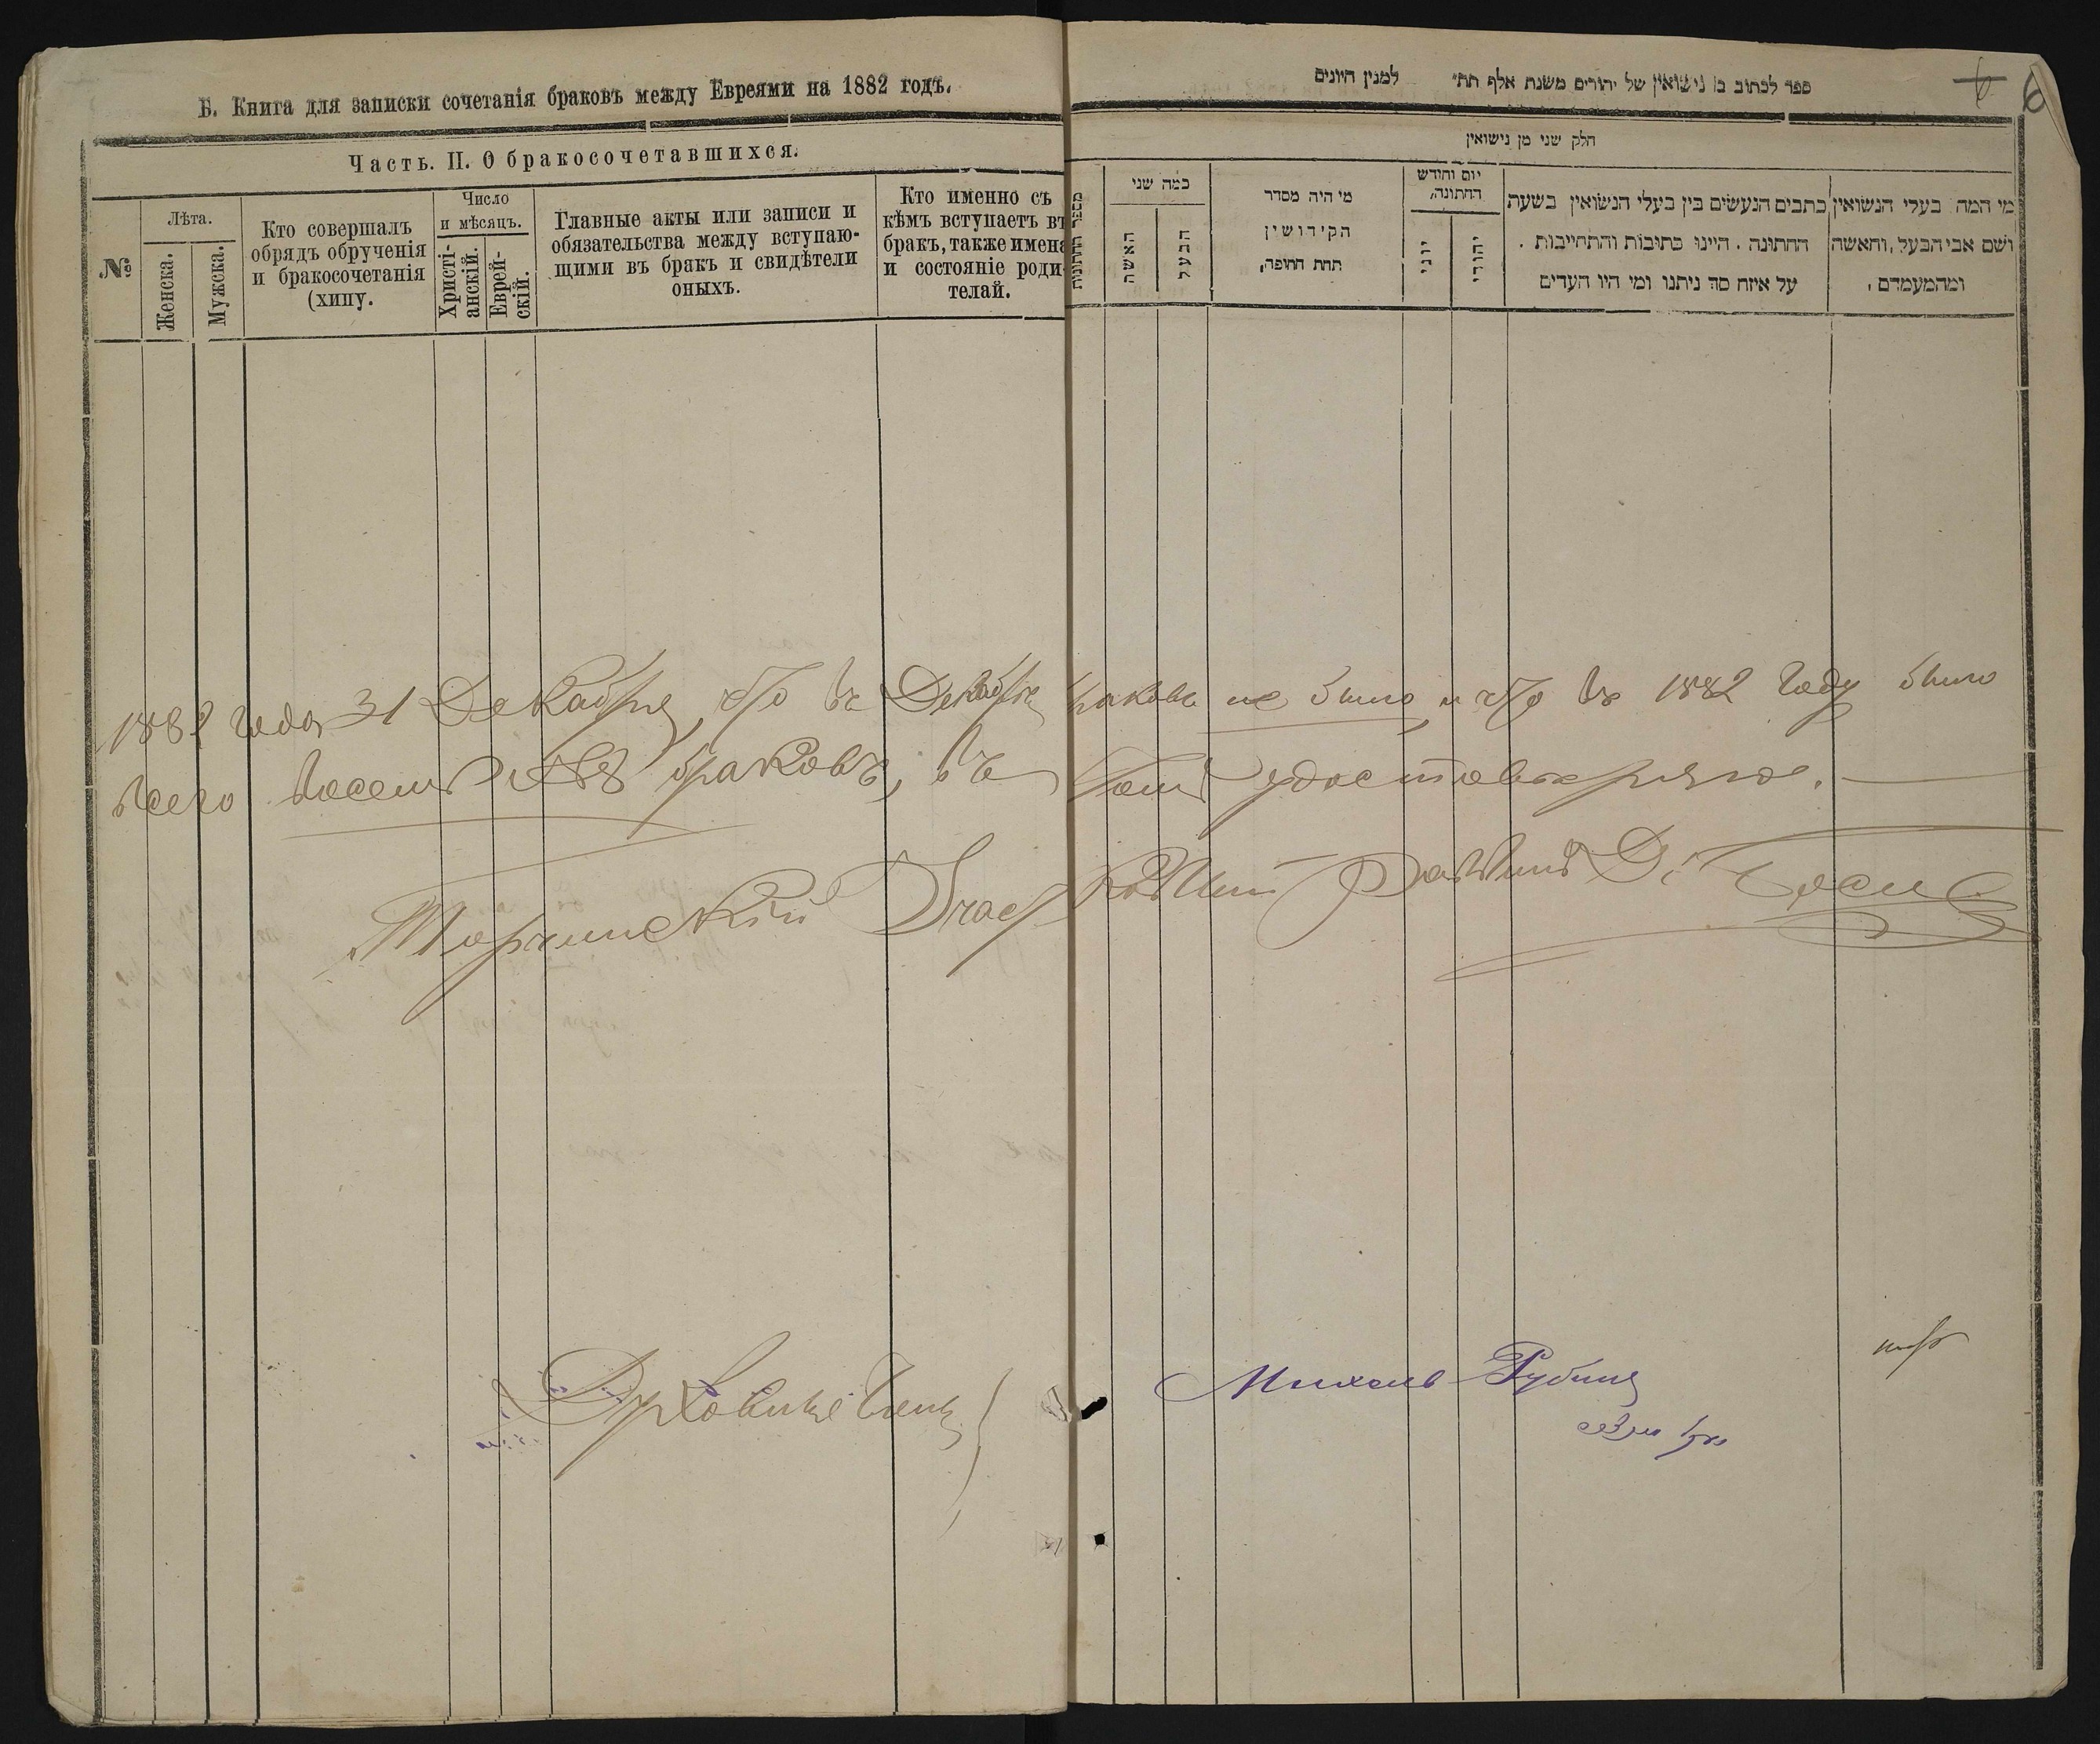 Б. Книга для записки сочетанія браковъ между Евреями на 1882 годъ.
Часть. II. О бракосочетавшихся.
№
Лѣта.
Женска.
Мужска.
Кто совершалъ
обрядъ обрученія
и бракосочетанія
(хипу.
Число
и мѣсяцъ.
Христі-
анскій.
Еврей-
скій.
Главные акты или записи и
обязательства между вступаю-
щими въ бракъ и свидѣтели
оныхъ.
Кто именно съ
кѣмъ вступаетъ въ
бракъ, также имена
и состояніе роди-
телай.
ספר לכתוב בו נישואין של יהודים משנת אלף תת״ למנין היונים
6 6
חלק שני מן נישואין
מספר החתונות
כמה שני
האשה
הבעל
מי היה מסדר
הקידושין
תחת החופה,
יום וחודש
החתונה,
יוני
יהודי
כתבים הנעשים בין בעלי הנשואין בשעת
החתונה . היינו כתובות והתחייבות .
על איזה סך ניתנו ומי היו העדים
מי המה בעלי הנשואין
ושם אבי הבעל, והאשה
ומהמעמדם .
1882 года 31 Декабря, что въ Декабрѣ браковъ не было, и что въ 1882 году было
всего восемь №8 браковъ, въ томъ удостовѣряю.
Раввинъ
Михель Рубинъ